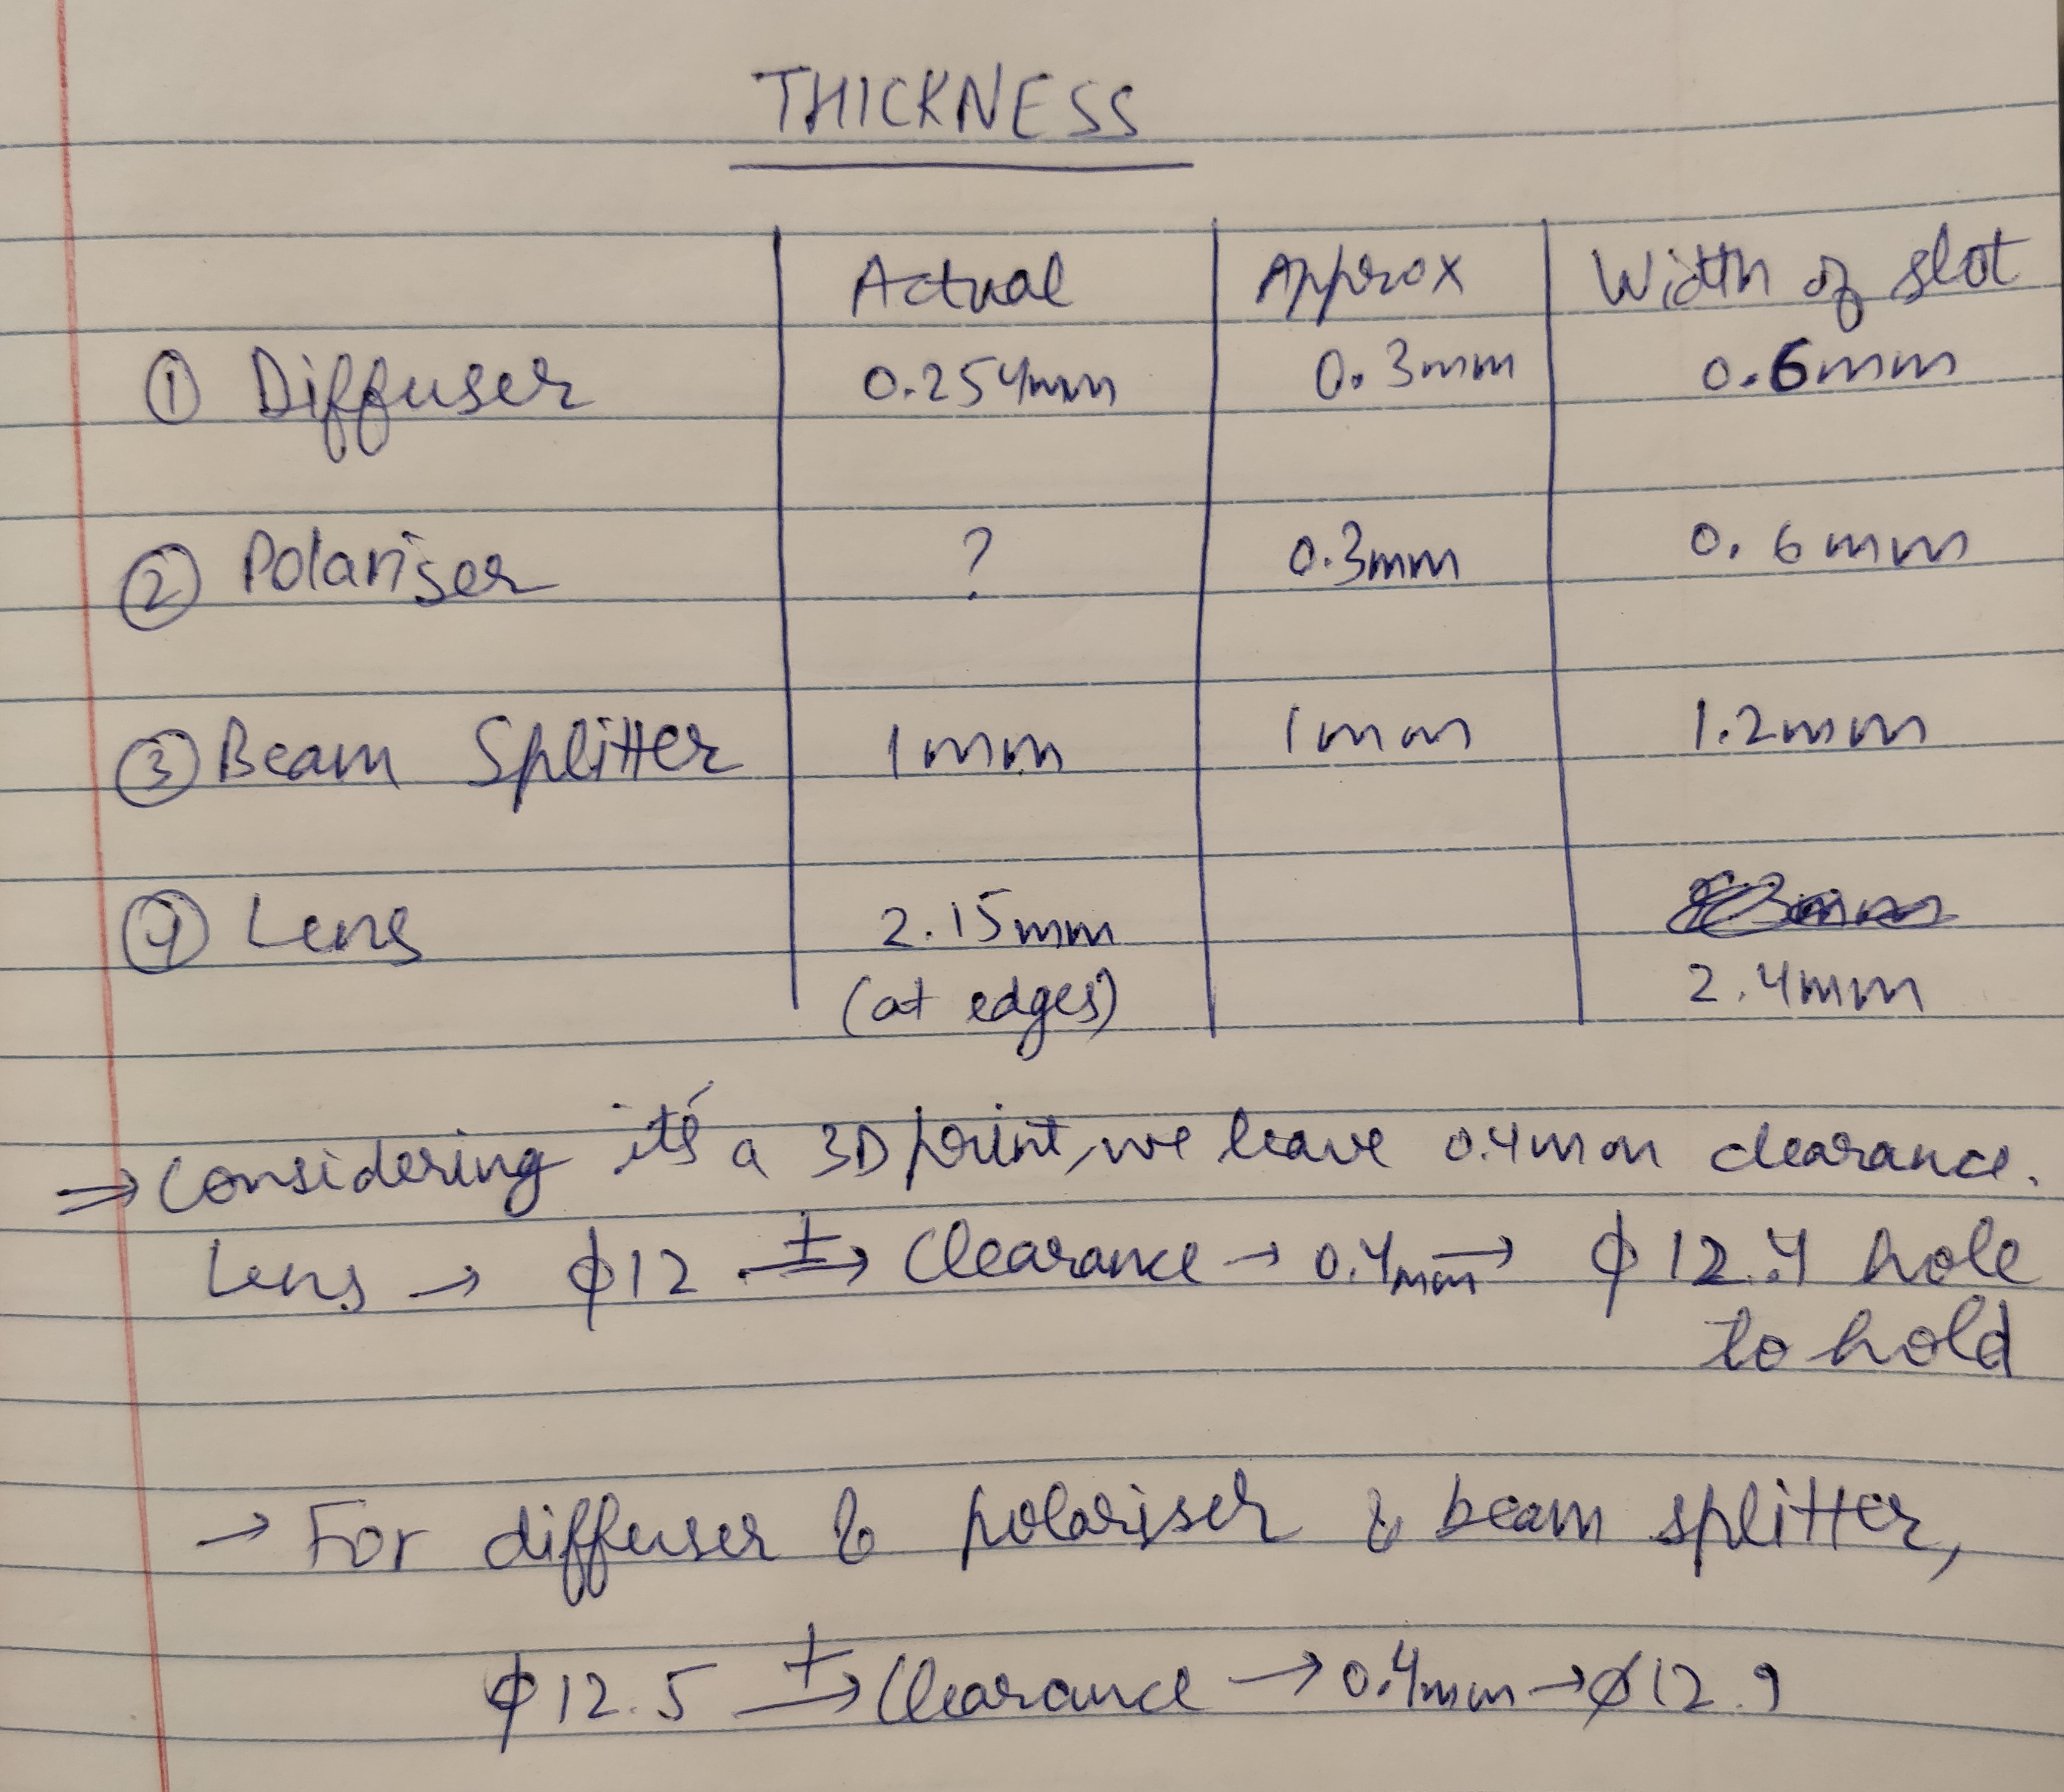 THICKNESS
Actual Approx Width of slot
① Diffuser 0.254mm 0.3mm 0.6mm
② Polariser ? 0.3mm 0.6mm
③ Beam Splitter 1mm 1mm 1.2mm
④ Lens 2.15mm
(at edges) 2.4mm
⇒ Considering it's a 3D print, we leave 0.4mm clearance.
Lens → ϕ12 +→ Clearance → 0.4mm → ϕ12.4 hole
to hold
→ For diffuser & polariser & beam splitter,
ϕ12.5 +→ Clearance → 0.4mm → ϕ12.9